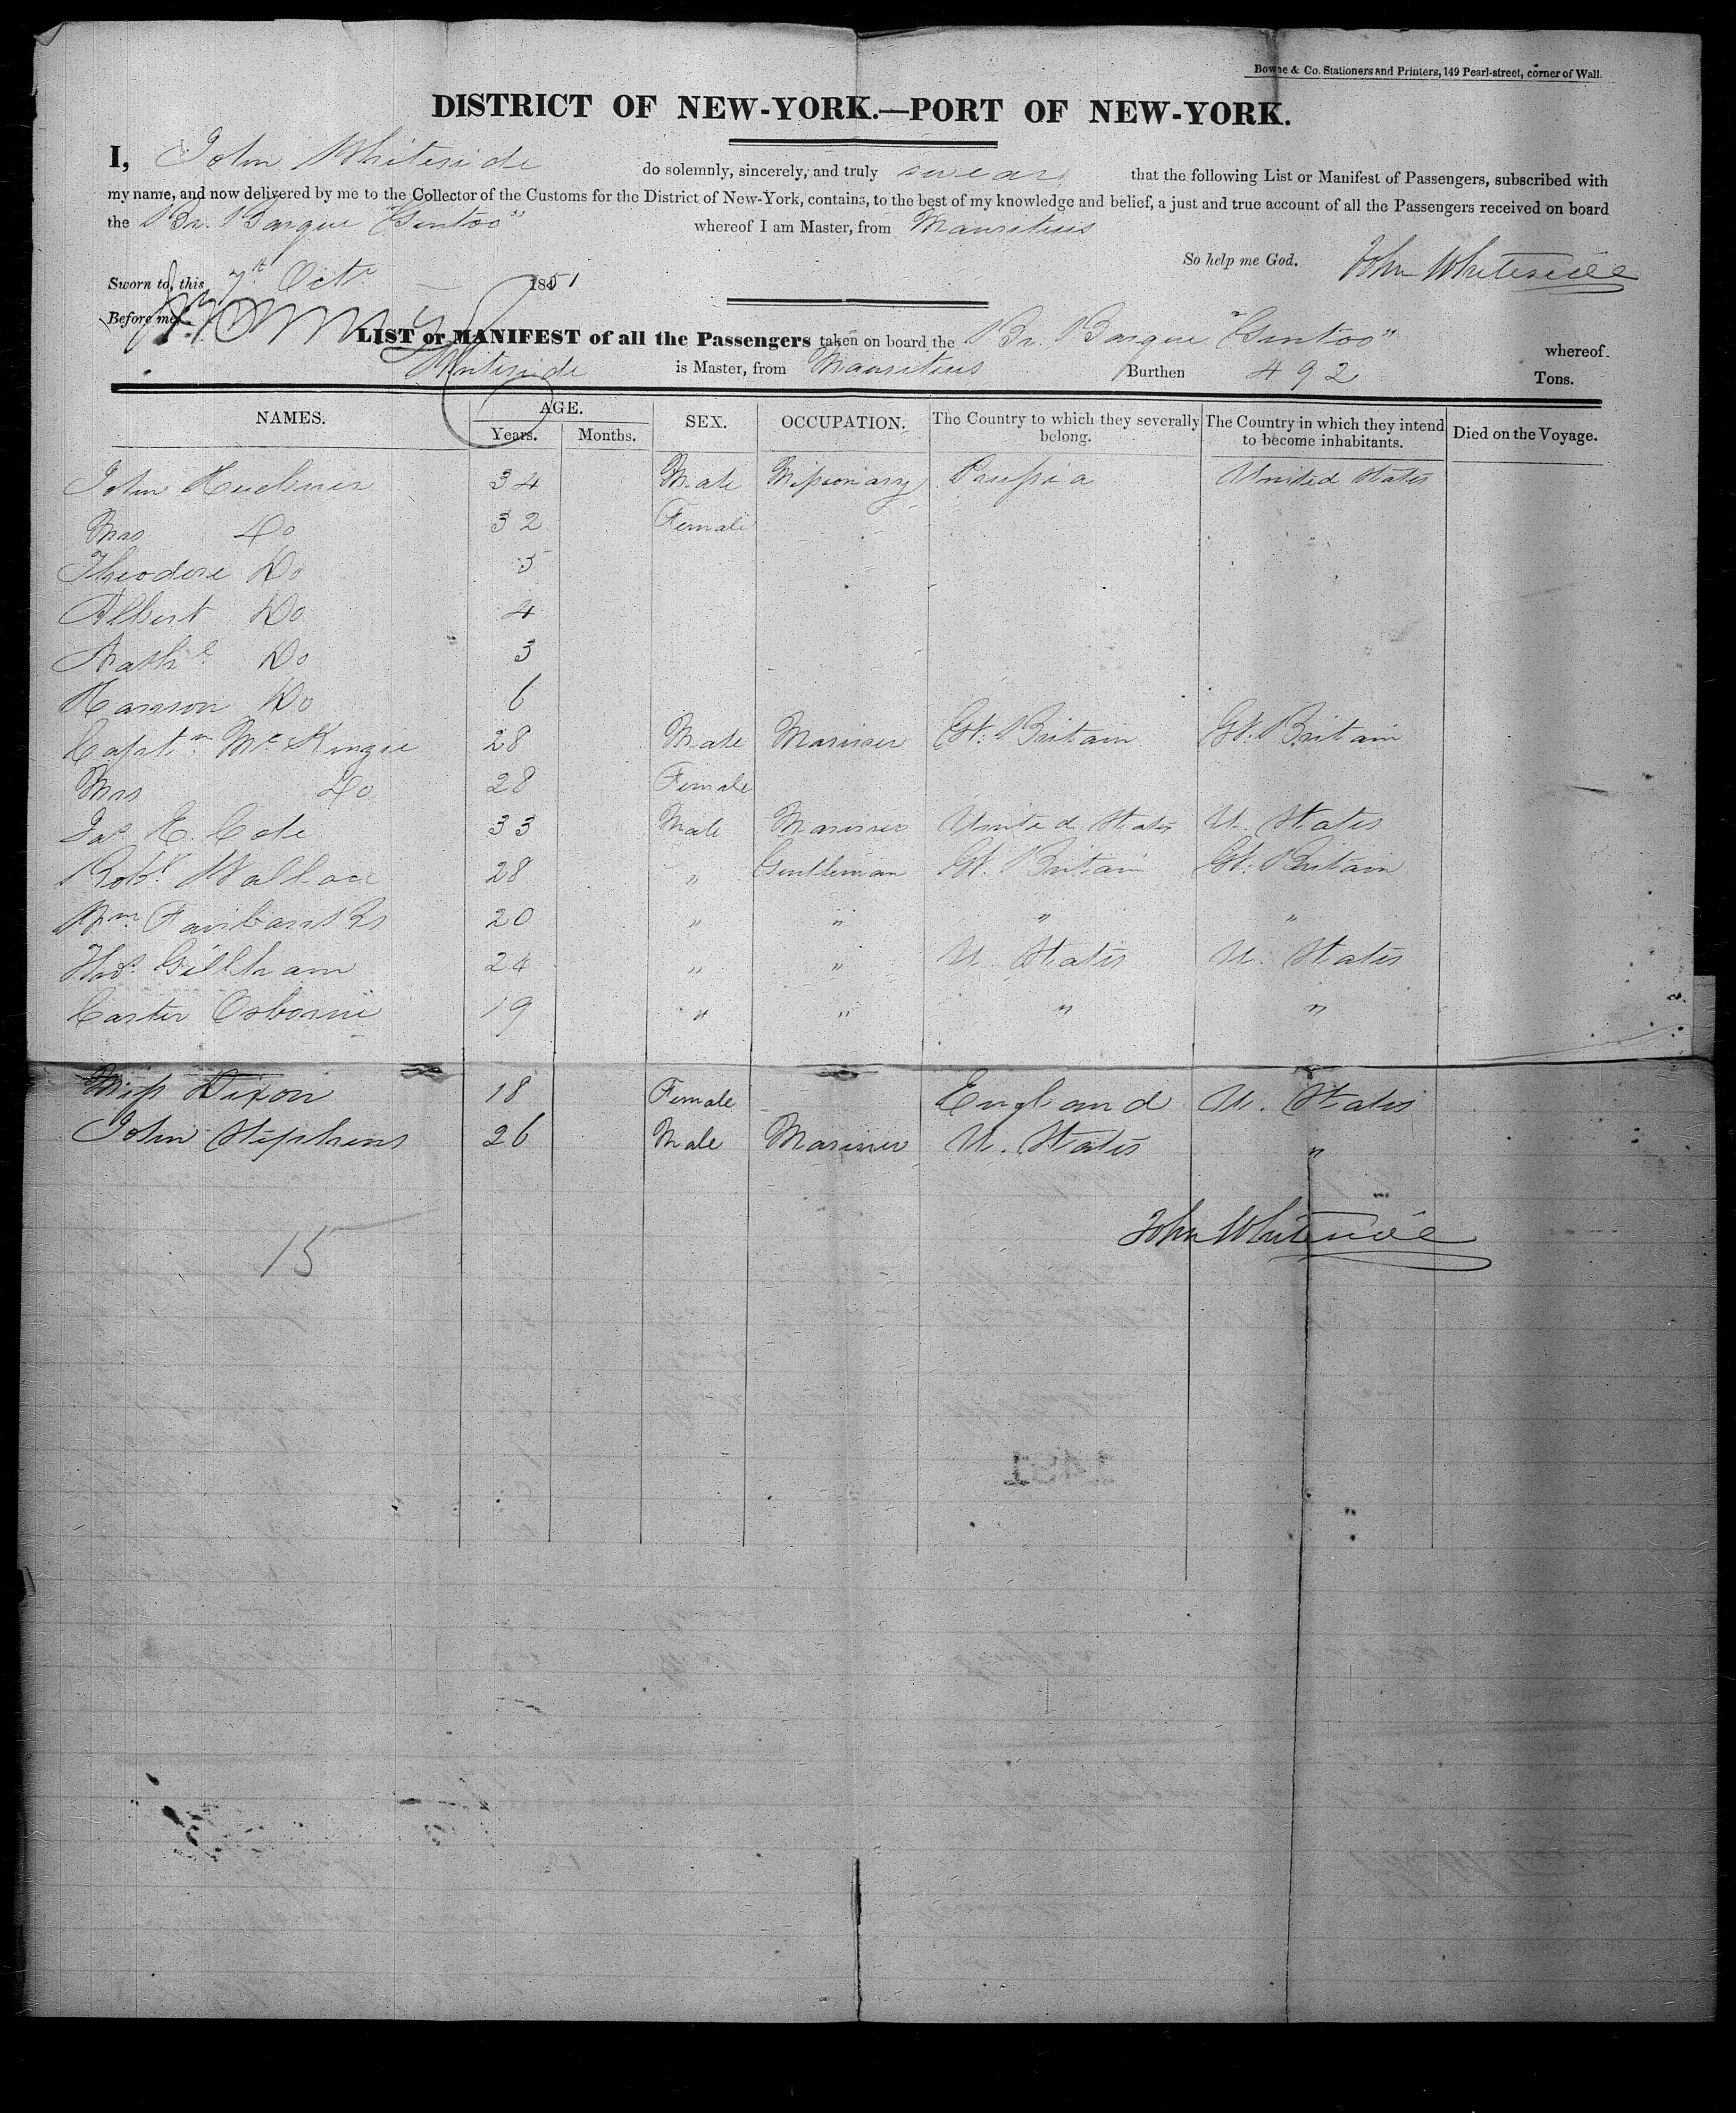 Bowne & Co. Stationers and Printers, 149 Pearl-street, corner of Wall.
DISTRICT OF NEW-YORK.—PORT OF NEW-YORK.
I, John Whiteside do solemnly, sincerely, and truly swear that the following List or Manifest of Passengers, subscribed with
my name, and now delivered by me to the Collector of the Customs for the District of New-York, contains, to the best of my knowledge and belief, a just and true account of all the Passengers received on board
the Br. Barque "Gentoo" whereof I am Master, from Mauritius
So help me God. John Whiteside
Sworn to, this 7th Octr 1851
Before me,
LIST or MANIFEST of all the Passengers taken on board the Br. Barque "Gentoo" whereof
Whiteside is Master, from Mauritius Burthen 492 Tons.
NAMES. AGE. SEX. OCCUPATION. The Country to which they severally belong. The Country in which they intend to become inhabitants. Died on the Voyage.
Years. Months.
John 34 Male Missionary Prussia United States
Mrs Do 32 Female
Theodore Do 5
Albert Do 4
Nathl Do 3
Do 6
Captn McKinzie 28 Male Mariner Gt. Britain Gt. Britain
Mrs Do 28 Female
Jas E. Cole 33 Male Mariner United States U. States
Robt Wallace 28 " Gentleman Gt. Britain Gt. Britain
Wm Fairbanks 20 " " " "
Thos Gillham 24 " " U. States U. States
Carter Osborne 19 " " " "
Miss Dixon 18 Female England U. States
John Stephens 26 Male Mariner U. States "
15
John Whiteside